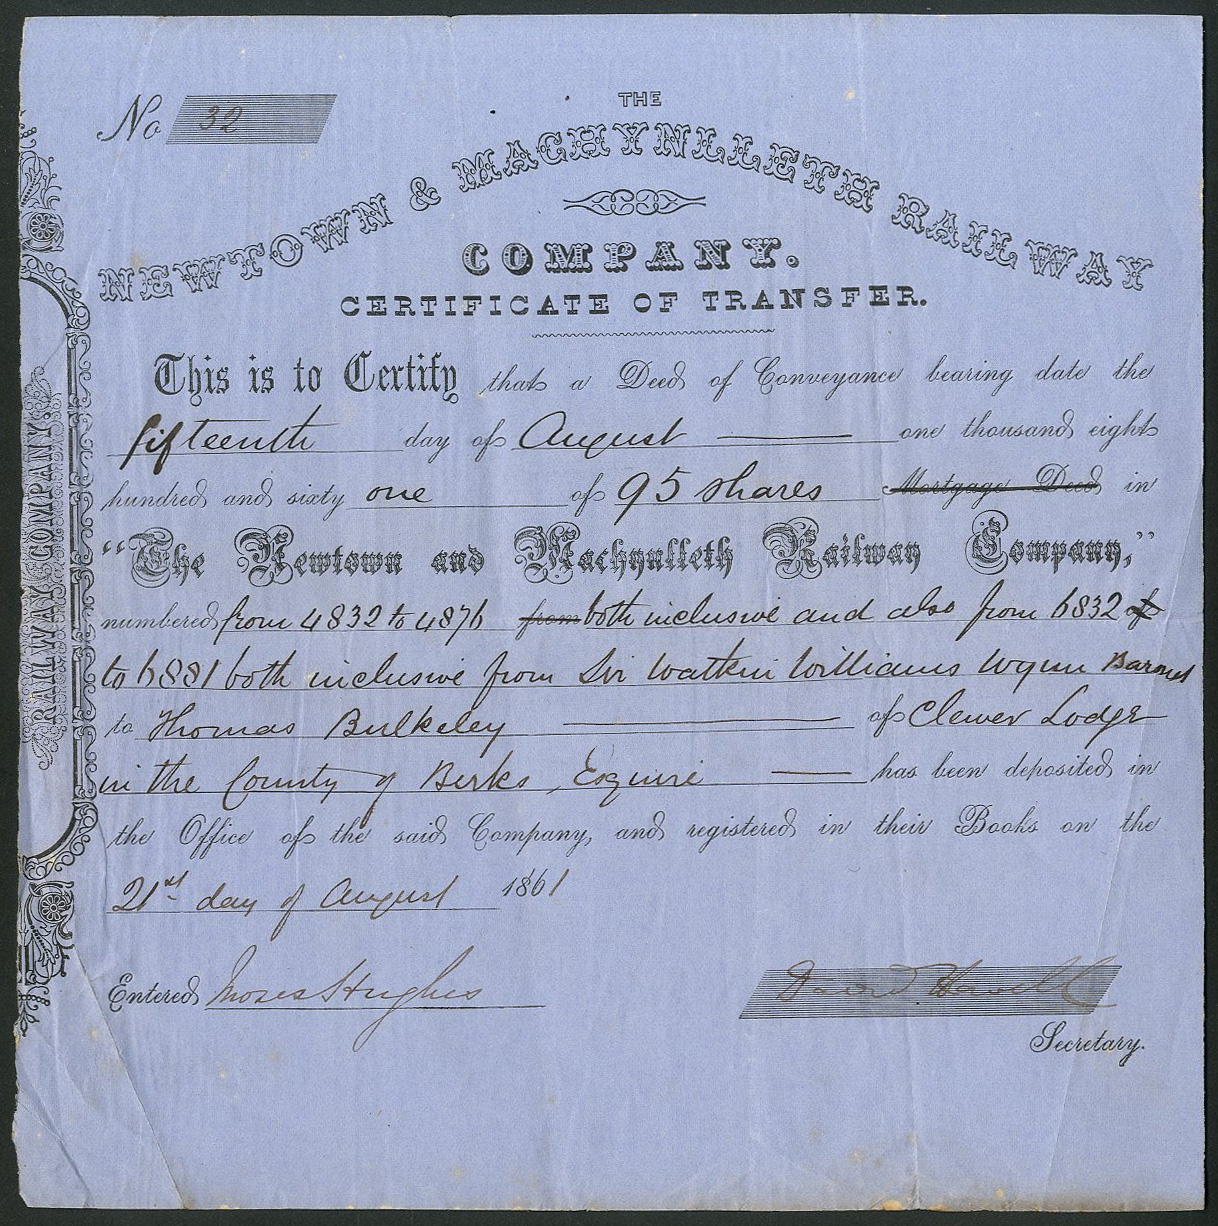 No 32
THE
NEWTOWN & MACHYNLLETH RAILWAY
COMPANY.
CERTIFICATE OF TRANSFER.
This is to Certify that a Deed of Conveyance bearing date the
fifteenth day of August one thousand eight
hundred and sixty one of 95 shares Mortgage Deed in
"The Newtown and Machynlleth Railway Company,"
numbered from 4832 to 4876 from both inclusive and also from 6832 of
to 6881 both inclusive from Sir Watkin Williams Wynn Baronet
to Thomas Bulkeley of Clewer Lodge
in the County of Berks, Esquire has been deposited in
the Office of the said Company, and registered in their Books on the
21st day of August 1861
Entered Moses Hughes
David Howell
Secretary.
RAILWAY COMPANY.